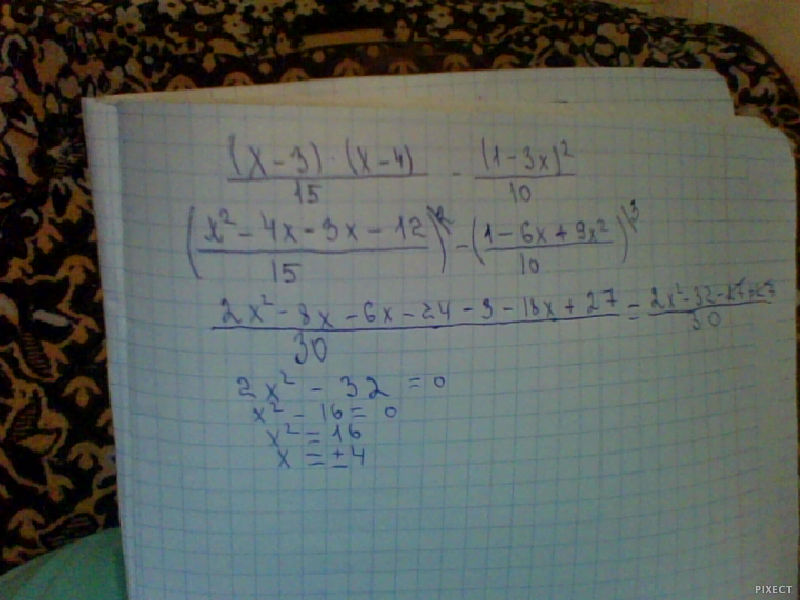 (x - 3) · (x - 4) / 15 - (1 - 3x)² / 10
(x² - 4x - 3x - 12 / 15)² - (1 - 6x + 9x² / 10)³
2x² - 8x - 6x - 24 - 3 - 18x + 27 / 30 = 2x² - 32 - 27 + 27 / 30
2x² - 32 = 0
x² - 16 = 0
x² = 16
x = ± 4
PIXECT